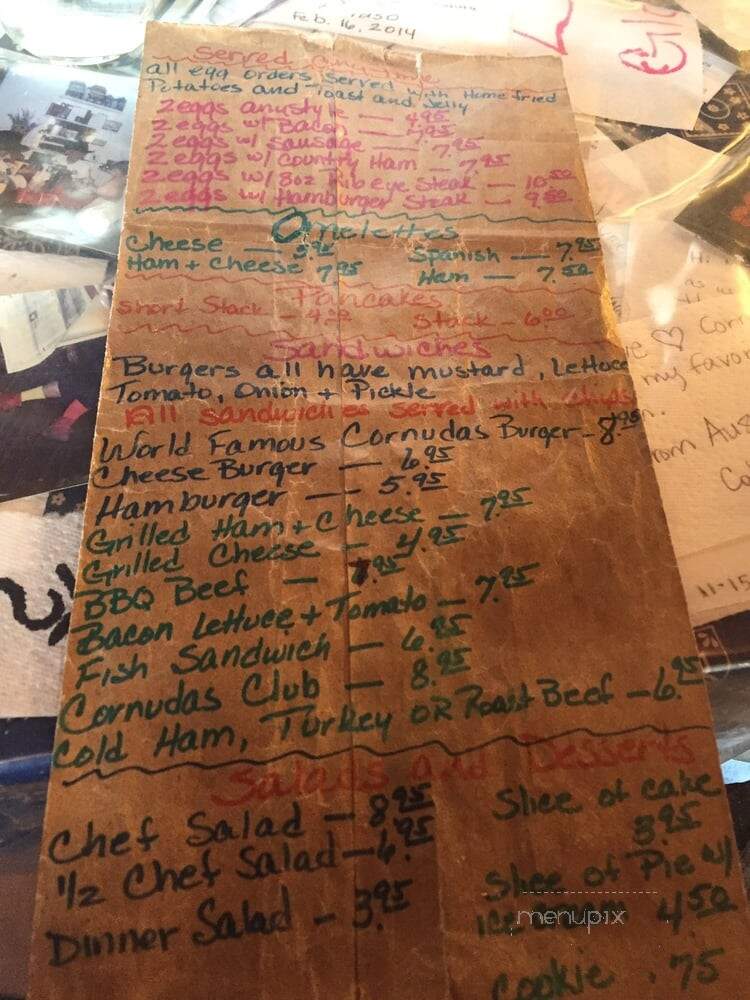 Feb. 16, 2014
Served Anytime
all egg orders served with Home fried
Potatoes and Toast and Jelly
2 eggs anystyle — 4.95
2 eggs w/ Bacon — 7.95
2 eggs w/ sausage — 7.95
2 eggs w/ Country Ham — 7.95
2 eggs w/ 8oz Rib eye Steak — 10.50
2 eggs w/ Hamburger Steak — 9.50
Omelettes
Cheese — 5.95 Spanish — 7.95
Ham + Cheese 7.95 Ham — 7.50
Pancakes
Short Stack — 4.00 Stack — 6.00
Sandwiches
Burgers all have mustard, Lettuce
Tomato, Onion + Pickle
All sandwiches served with chips
World Famous Cornudas Burger — 8.95
Cheese Burger — 6.95
Hamburger — 5.95
Grilled Ham + Cheese — 7.95
Grilled Cheese — 4.95
BBQ Beef — 7.95
Bacon Lettuce + Tomato — 7.95
Fish Sandwich — 6.95
Cornudas Club — 8.95
Cold Ham, Turkey OR Roast Beef — 6.95
Salads and Desserts
Chef Salad — 8.95
1/2 Chef Salad — 6.95
Dinner Salad — 3.95
Slice of cake
3.95
Slice of Pie w/
icecream 4.50
Cookie .75
my favor
rom Aus
11-15
menupix